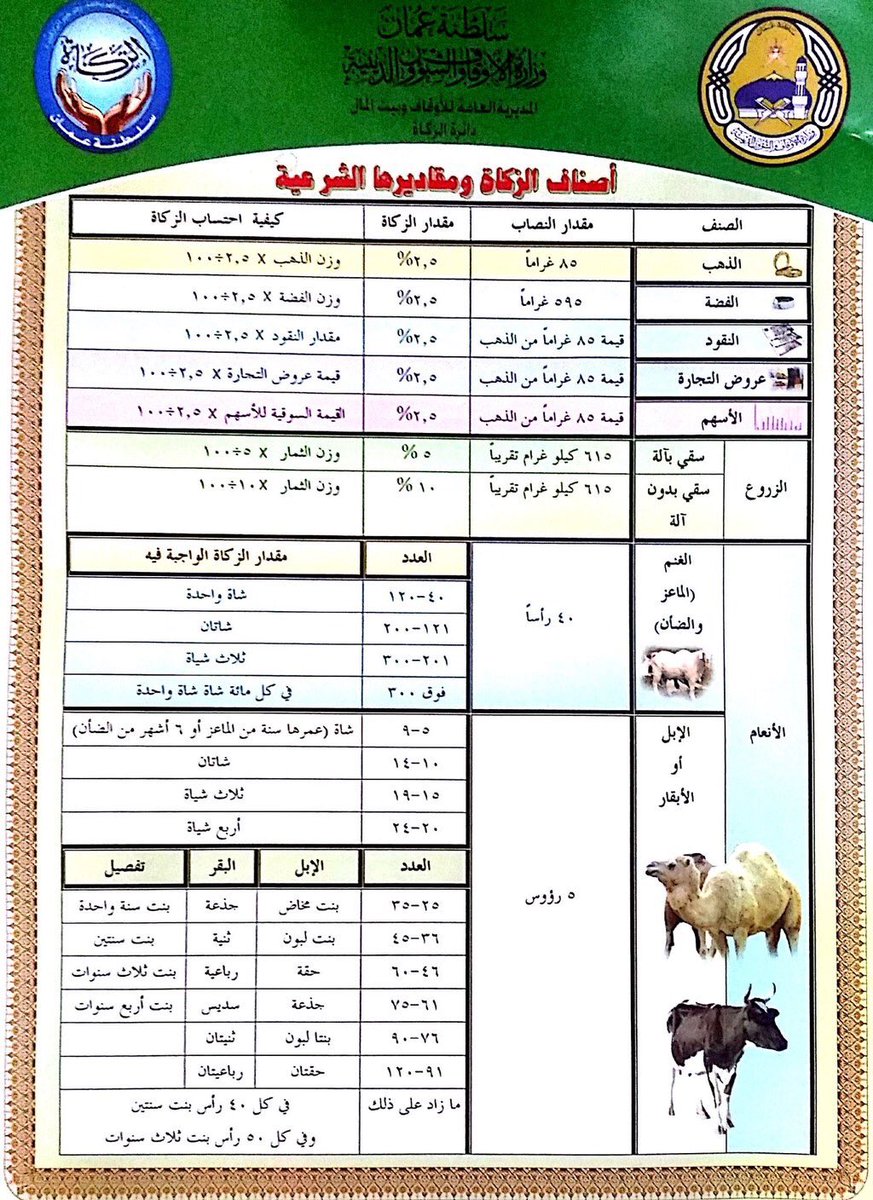 الزكاة
سلطنة عمان
سلطنة عمان
وزارة الأوقاف والشؤون الدينية
المديرية العامة للأوقاف وبيت المال
دائرة الزكاة
سلطنة عمان
وزارة الأوقاف والشؤون الدينية
أصناف الزكاة ومقاديرها الشرعية
الصنف مقدار النصاب مقدار الزكاة كيفية احتساب الزكاة
الذهب ٨٥ غراماً ٢,٥% وزن الذهب X ٢,٥÷١٠٠
الفضة ٥٩٥ غراماً ٢,٥% وزن الفضة X ٢,٥÷١٠٠
النقود قيمة ٨٥ غراماً من الذهب ٢,٥% مقدار النقود X ٢,٥÷١٠٠
عروض التجارة قيمة ٨٥ غراماً من الذهب ٢,٥% قيمة عروض التجارة X ٢,٥÷١٠٠
الأسهم قيمة ٨٥ غراماً من الذهب ٢,٥% القيمة السوقية للأسهم X ٢,٥÷١٠٠
الزروع
سقي بآلة ٦١٥ كيلو غرام تقريباً ٥ % وزن الثمار X ٥÷١٠٠
سقي بدون ٦١٥ كيلو غرام تقريباً ١٠ % وزن الثمار X ١٠÷١٠٠
آلة
الأنعام
الغنم
(الماعز
والضأن)
٤٠ رأساً
العدد مقدار الزكاة الواجبة فيه
٤٠-١٢٠ شاة واحدة
١٢١-٢٠٠ شاتان
٢٠١-٣٠٠ ثلاث شياة
فوق ٣٠٠ في كل مائة شاة شاة واحدة
الإبل
أو
الأبقار
٥ رؤوس
٥-٩ شاة (عمرها سنة من الماعز أو ٦ أشهر من الضأن)
١٠-١٤ شاتان
١٥-١٩ ثلاث شياة
٢٠-٢٤ أربع شياة
العدد الإبل البقر تفصيل
٢٥-٣٥ بنت مخاض جذعة بنت سنة واحدة
٣٦-٤٥ بنت لبون ثنية بنت سنتين
٤٦-٦٠ حقة رباعية بنت ثلاث سنوات
٦١-٧٥ جذعة سديس بنت أربع سنوات
٧٦-٩٠ بنتا لبون ثنيتان
٩١-١٢٠ حقتان رباعيتان
ما زاد على ذلك في كل ٤٠ رأس بنت سنتين
وفي كل ٥٠ رأس بنت ثلاث سنوات